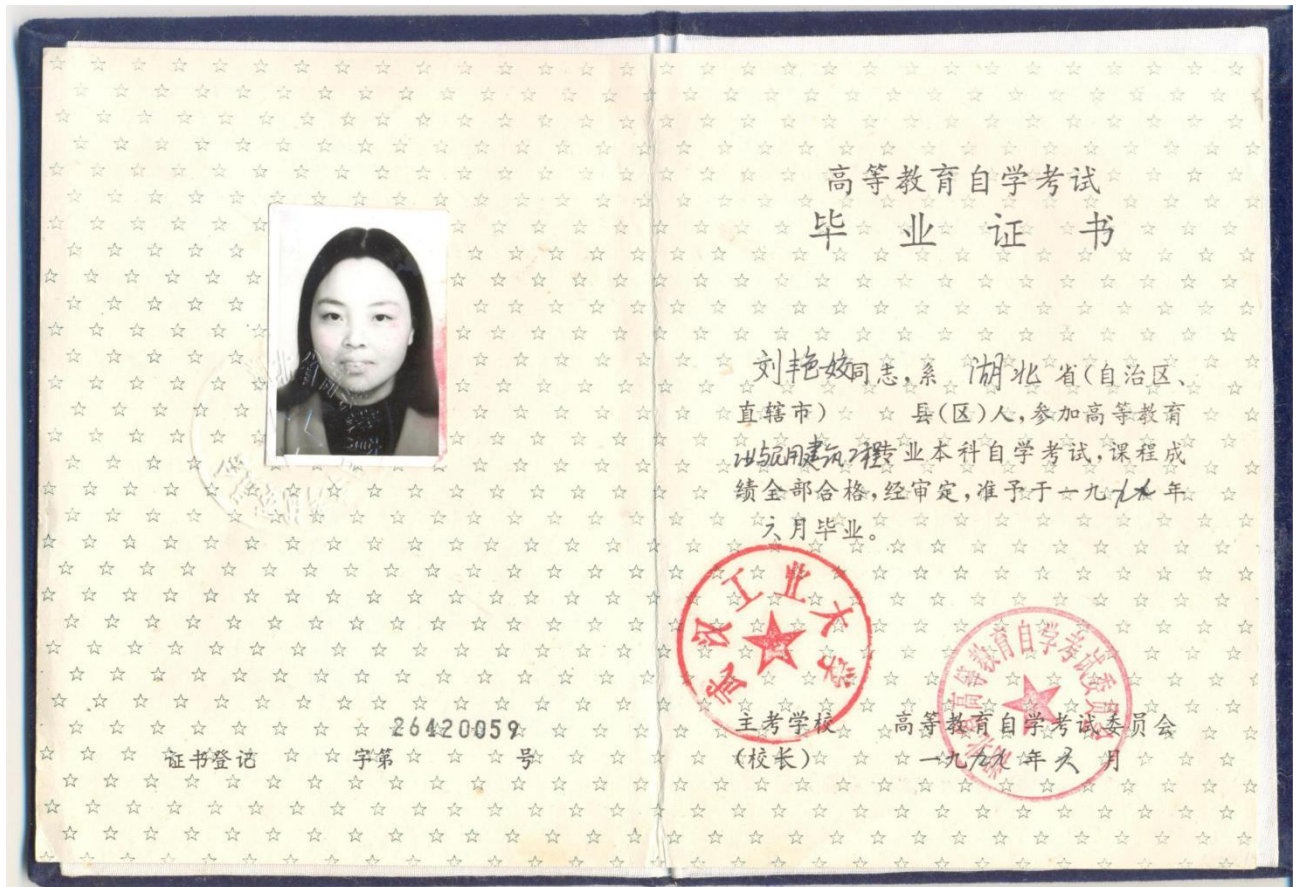 26420059
证书登记 字第 号
高等教育自学考试
毕业证书
刘艳姣同志,系 湖北 省(自治区、
直辖市) 县(区)人,参加高等教育
工业与民用建筑工程专业本科自学考试,课程成
绩全部合格,经审定,准予于一九九九年
六月毕业。
武汉工业大学
湖北省高等教育自学考试委员会
主考学校 高等教育自学考试委员会
(校长) 一九九九年六月